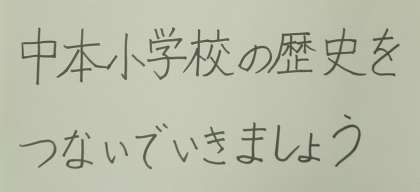 中本小学校の歴史を
つないでいきましょう